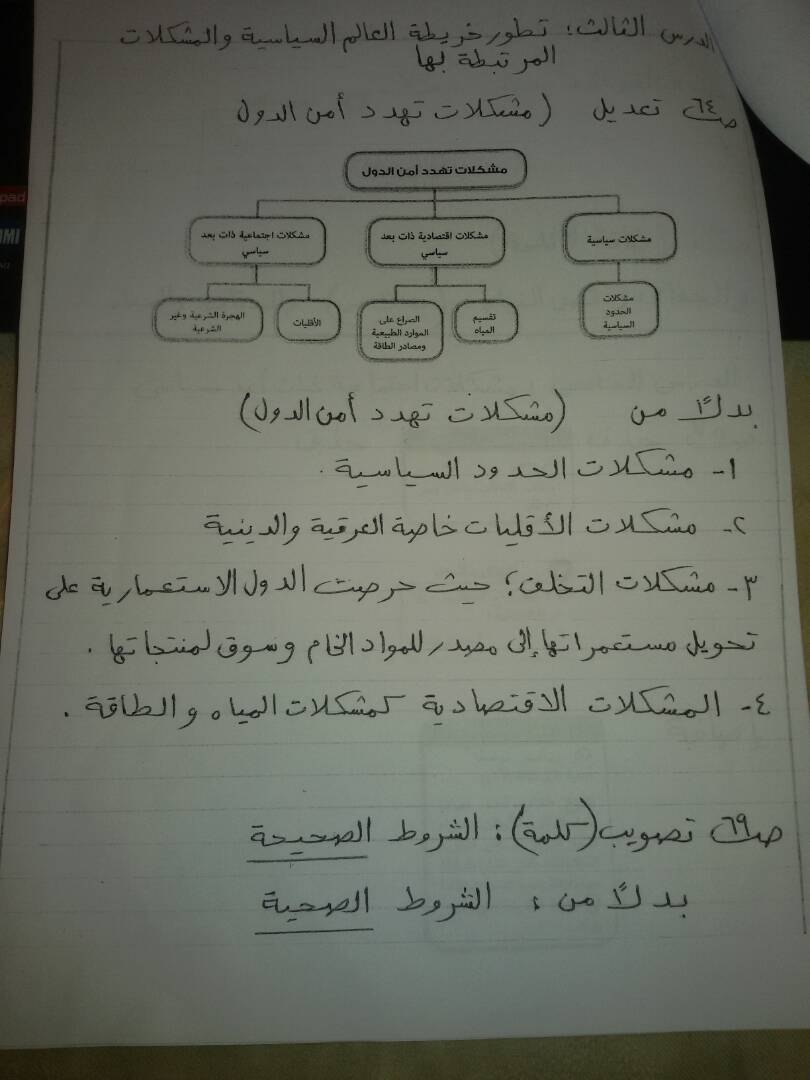 الدرس الثالث: تطور خريطة العالم السياسية والمشكلات
المرتبطة بها
ص٦٤ تعديل (مشكلات تهدد أمن الدول
مشكلات تهدد أمن الدول
مشكلات سياسية
مشكلات اقتصادية ذات بعد
سياسي
مشكلات اجتماعية ذات بعد
سياسي
مشكلات
الحدود
السياسية
تقسيم
المياه
الصراع على
الموارد الطبيعية
ومصادر الطاقة
الأقليات
الهجرة الشرعية وغير
الشرعية
بدلاً من (مشكلات تهدد أمن الدول)
١- مشكلات الحدود السياسية.
٢- مشكلات الأقليات خاصة العرقية والدينية
٣- مشكلات التخلف؛ حيث حرصت الدول الاستعمارية على
تحويل مستعمراتها إلى مصدر للمواد الخام وسوق لمنتجاتها.
٤- المشكلات الاقتصادية كمشكلات المياه والطاقة.
ص٦٩ تصويب (كلمة): الشروط الصحيحة
بدلاً من: الشروط الصحية
pad